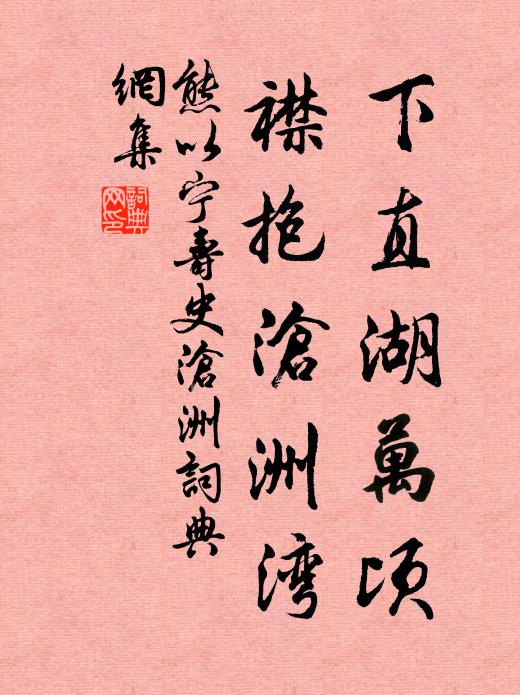 下直湖萬頃
襟抱滄洲湾
熊以宁壽史滄洲詞典
網集
詞典
网印